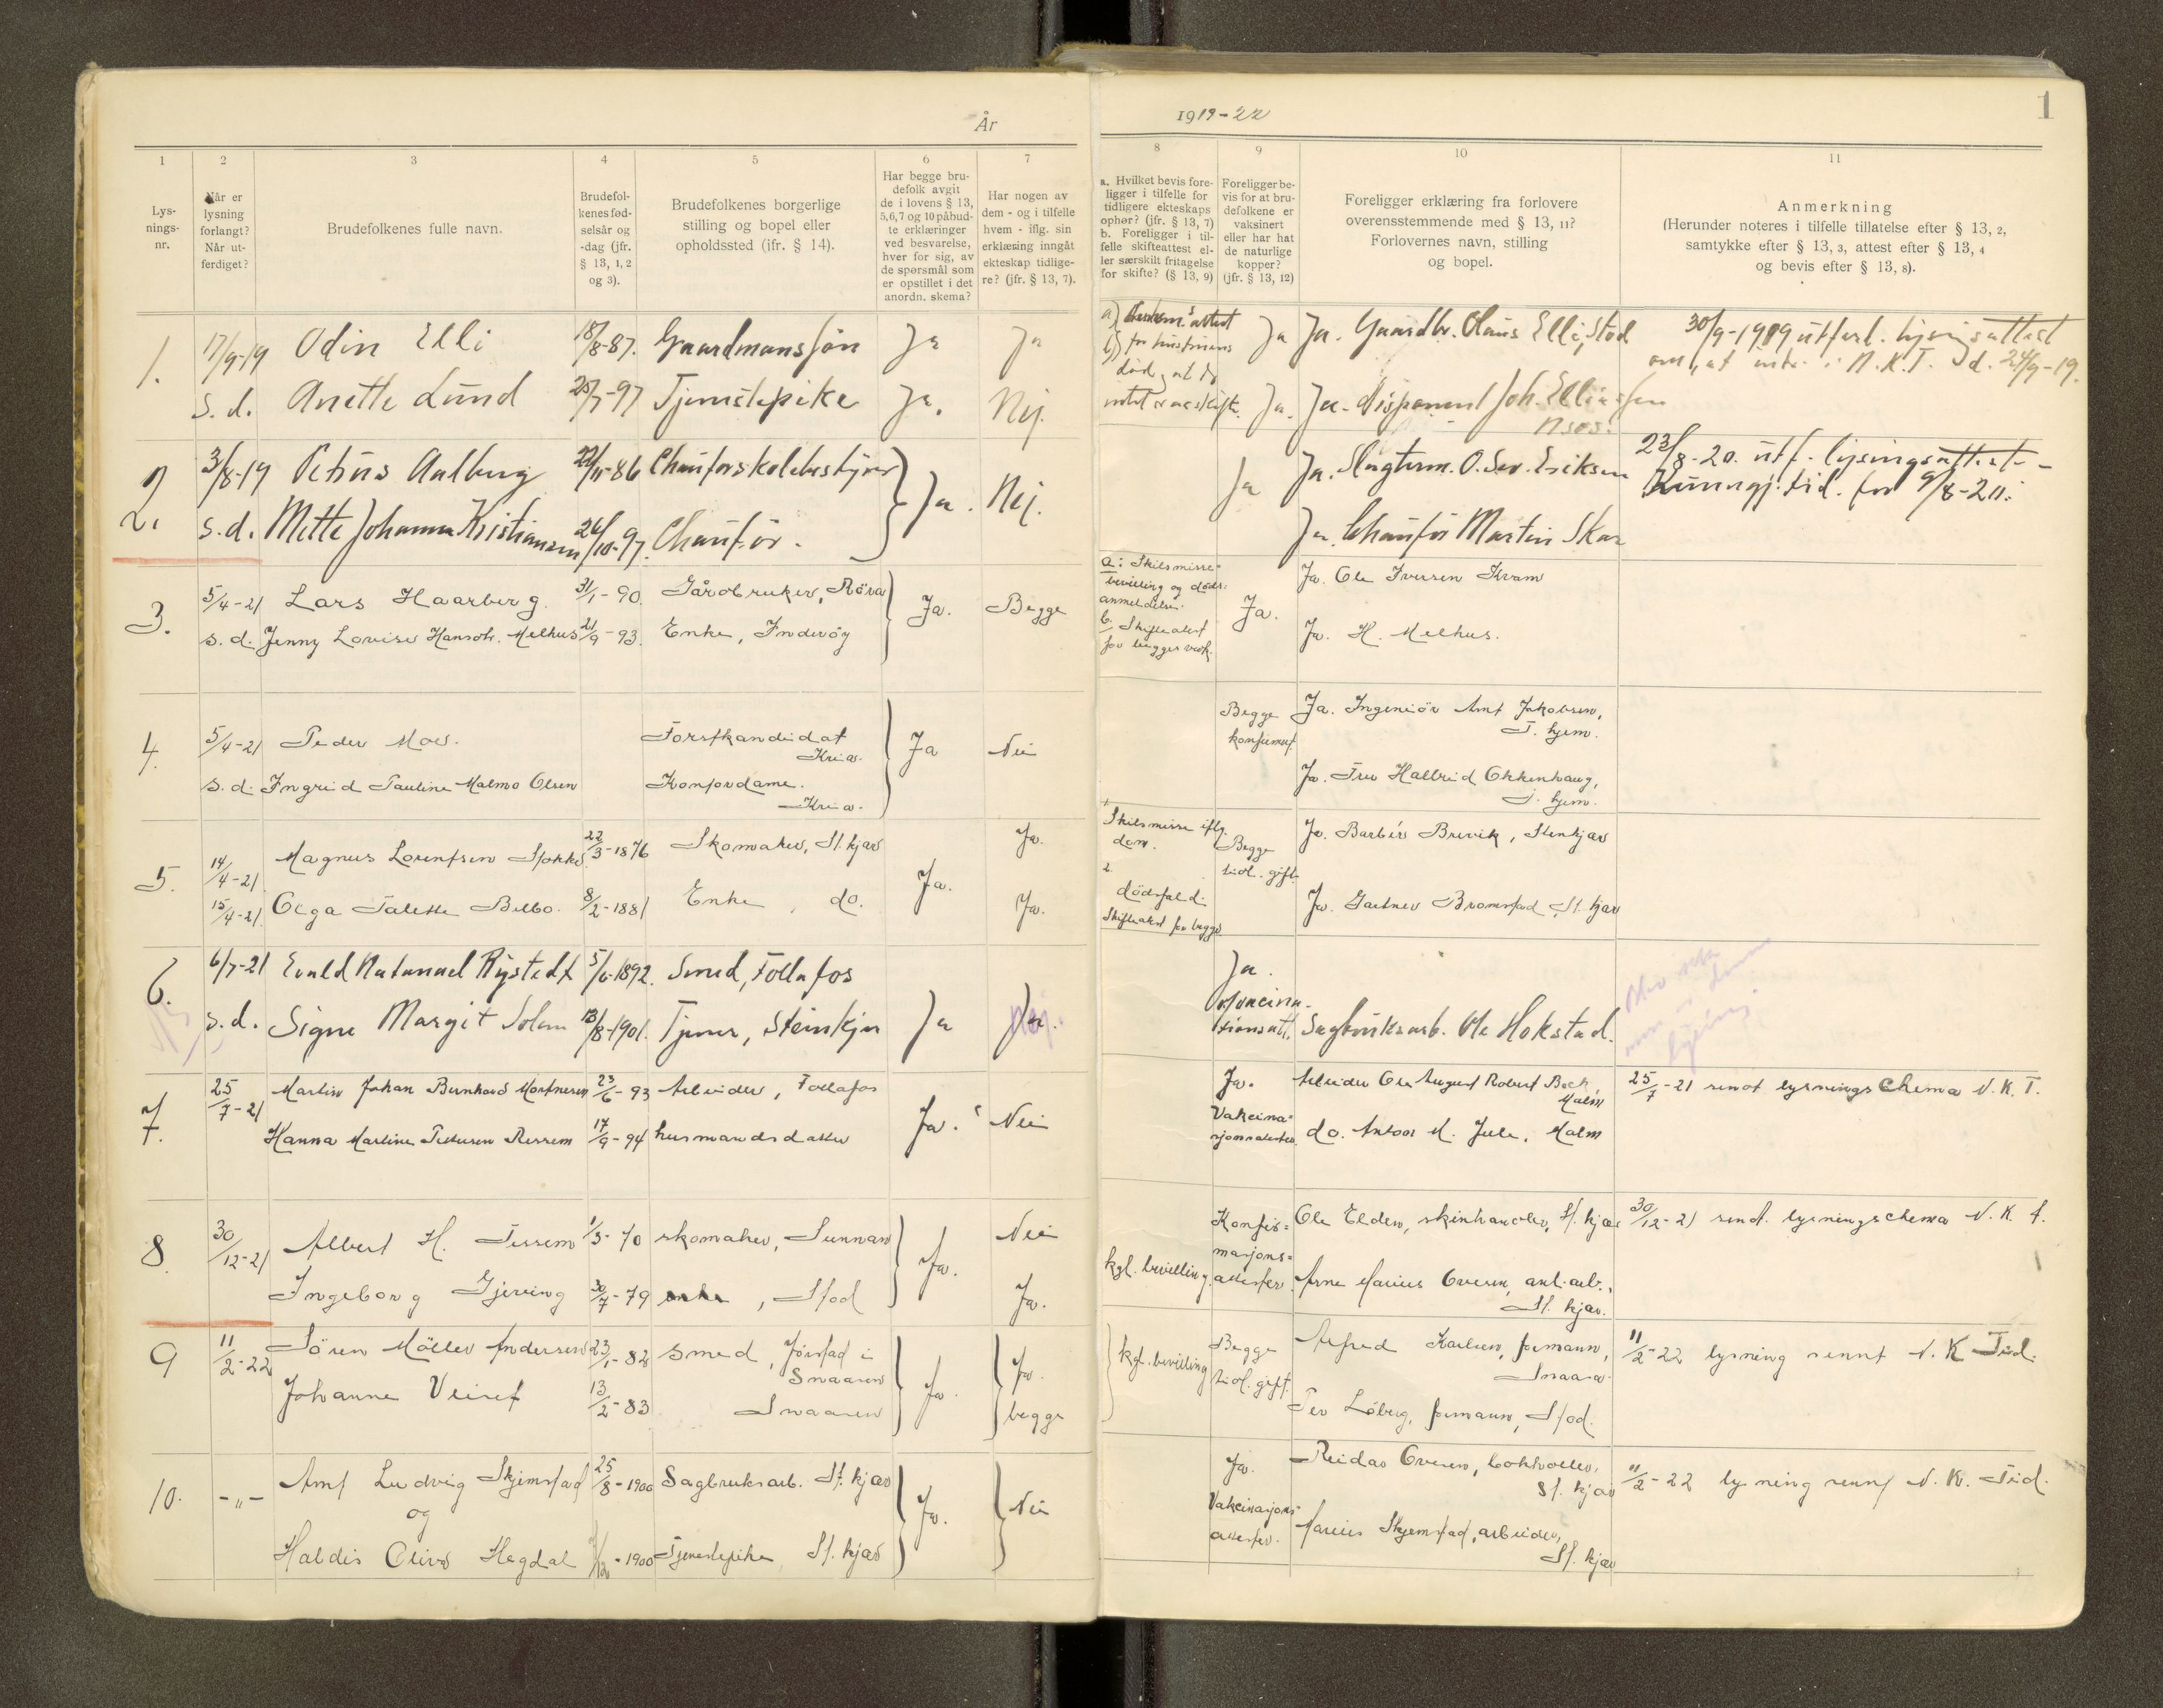 År
1919-22
1
1
Lys-
nings-
nr.
2
Når er
lysning
forlangt?
Når ut-
ferdiget?
3
Brudefolkenes fulle navn.
4
Brudefol-
kenes fød-
selsår og
-dag (jfr.
§ 13, 1, 2
og 3).
5
Brudefolkenes borgerlige
stilling og bopel eller
opholdssted (jfr. § 14).
6
Har begge bru-
defolk avgit
de i lovens § 13,
5,6,7 og 10 påbud-
te erklæringer
ved besvarelse,
hver for sig, av
de spørsmål som
er opstillet i det
anordn. skema?
7
Har nogen av
dem - og i tilfelle
hvem - iflg. sin
erklæring inngåt
ekteskap tidlige-
re? (jfr. § 13, 7).
8
a. Hvilket bevis fore-
ligger i tilfelle for
tidligere ekteskaps
ophør? (jfr. § 13, 7)
b. Foreligger i til-
felle skifteattest el-
ler særskilt fritagelse
for skifte? (§ 13, 9)
9
Foreligger be-
vis for at bru-
defolkene er
vaksinert
eller har hat
de naturlige
kopper?
(jfr. § 13, 12)
10
Foreligger erklæring fra forlovere
overensstemmende med § 13, 11?
Forlovernes navn, stilling
og bopel.
11
Anmerkning
(Herunder noteres i tilfelle tillatelse efter § 13, 2,
samtykke efter § 13, 3, attest efter § 13, 4
og bevis efter § 13, 8).
1. 17/9-19 Odin Elli 18/8-87. Gaardmansøn Ja Ja
s.d. Anette Lund 20/7-97 Tjenestepike Ja. Nej.
a) attest
b) for hustruens
død, at
intet er at skifte.
Ja Ja. Gaardbr. Olaus Elli, Stod
Ja. Ja. Disponent Joh. Elliassen
Namsos.
30/9-1919 utferd. lysningsattest
om, at N.K.T. d. 24/9-19.
2. 3/8-19 Petrus Aalberg 22/11-86 Chaufførskolebestyrer Ja. Nej.
s.d. Mette Johanna Kristiansen 26/10-97. Chauffør.
Ja Ja. Slagterm. O. Sev. Eriksen
Ja. Chauffør Martin Skar
23/8-20. utf. lysingsattest-
Kunngj. tid. for 9/8-20.
3. 5/4-21 Lars Haarberg 31/1-90. Gårdbruker, Röra Ja. Begge
s.d. Jenny Lovise Hansdtr. Melhus 21/9-93. Enke, Inderöy
a: Skilsmisse-
bevilling og döds-
anmeldelse.
b. Skifteattest
for begges vedk.
Ja.
Ja. Ole Iversen Kvam
Ja. H. Melhus.
4. 5/4-21 Peder Moe. Forstkandidat Ja Nei
Kria.
s.d. Ingrid Pauline Malmo Olsen Kontordame.
Kria.
Begge
konfirmert
Ja. Ingeniör Arnt Jakobsen,
T. hjem.
Ja. Fru Hallrid Okkenhaug,
T. hjem.
5. 14/4-21 Magnus Lorentsen Stokke 22/3-1876 Skomaker, St. kjær Ja. Ja.
15/4-21 Olga Talette Belbo. 8/2-1881 Enke, do. Ja.
1 Skilsmisse iflg.
dom.
2.
dödsfald.
Skifteattest for begge
Begge
tidl. gift.
Ja. Barbér Brevik, Stenkjær
Ja. Gartner Bromstad, St. kjær
6. 6/7-21 Evald Natanael Rystedt 5/6-1892. Smed, Follafos
s.d. Signe Margit Solem 13/8-1901. Tjener, Steinkjer Ja Nej.
Ja.
Vaccina-
tionsatt.
Sagbruksarb. Ole Hokstad.
7. 25/7-21 Martin Johan Bernhard Mortensen 23/6-93 Arbeider, Follafos Ja. Nei
Hanna Marline Pettersen Ressem 17/9-94 husmandsdatter
Ja.
Vakcina-
sjonsattester.
Arbeider Ole August Robert Bach,
Malm
do. Anton M. Jule, Malm
25/7-21 sendt lysningschema N.K.T.
8. 30/12-21 Albert H. Tessem 1/3-70 skomaker, Sunnan Ja. Nei
Ingeborg Gjering 30/7-79 enke, Stod Ja.
kgl. bevilling.
Konfir-
masjons-
attester.
Ole Elden, skinhandler, St. kjær
Arne Marius Ovesen, anl. arb.,
St. kjær.
30/12-21 sendt. lysningschema N.K.T.
9 11/2-22 Sören Möller Andersen 23/1-82 smed, Jörstad i Ja. Ja.
Snaasen
Johanne Veiset 13/2-83 Snaasen begge
kgl. bevilling
Begge
tidl. gift.
Alfred Karlsen, formann,
Snaasa.
Per Löberg, formann, Stod.
11/2-22 lysning sennt N.K. Tid.
10. -"- Arnt Ludvig Skjemstad 25/8-1900 Sagbruksarb. St. kjær Ja. Nei
og
Haldis Olive Hegdal -1900 Tjenestepike St. kjær
Ja.
Vakcinasjons-
attester.
Reidar Ovesen, bokholder,
St. kjær
Marius Skjemstad, arbeider,
St. kjær
11/2-22 lysning sennt N.K. Tid.